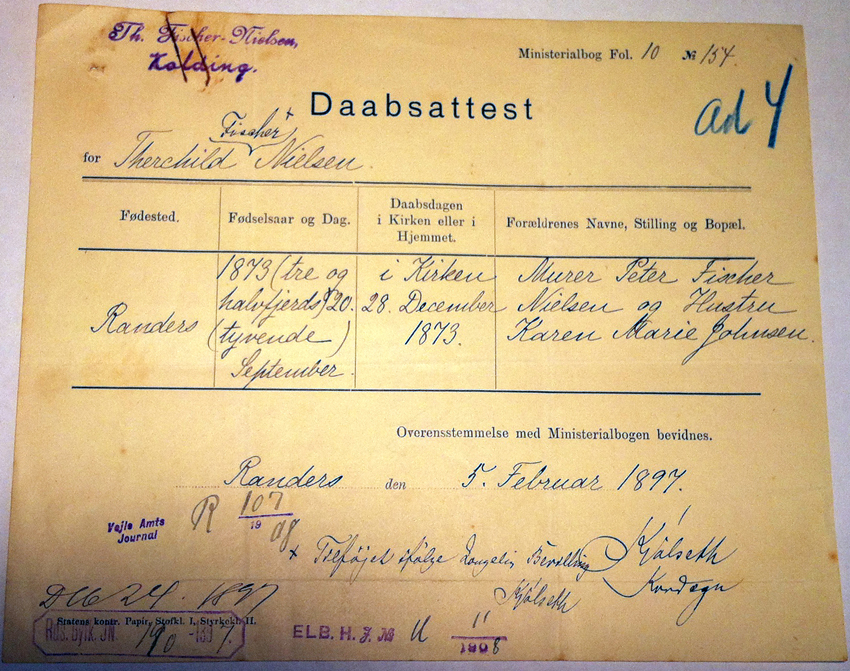 Th. Fischer-Nielsen,
Kolding.
Ministerialbog Fol. 10 № 154.
Ad 4
Daabsattest
Fischer +
for Therchild Nielsen.
Fødested.
Fødselsaar og Dag.
Daabsdagen
i Kirken eller i
Hjemmet.
Forældrenes Navne, Stilling og Bopæl.
Randers
1873 (tre og
halvfjerds) 20.
(tyvende)
September.
i Kirken
28. December
1873.
Murer Peter Fischer
Nielsen og Hustru
Karen Marie Johnsen.
Overensstemmelse med Ministerialbogen bevidnes.
Randers den 5. Februar 1897.
R 107
19 08
Vejle Amts
Journal
Kjölseth
Kordegn
+ Tilføjet ifølge Kongelig Bevilling
Kjölseth
24. 1897
Statens kontr. Papir, Stofkl. I, Styrkekl. II.
190 - 1897.
ELB. H. J. № 4 11
1908